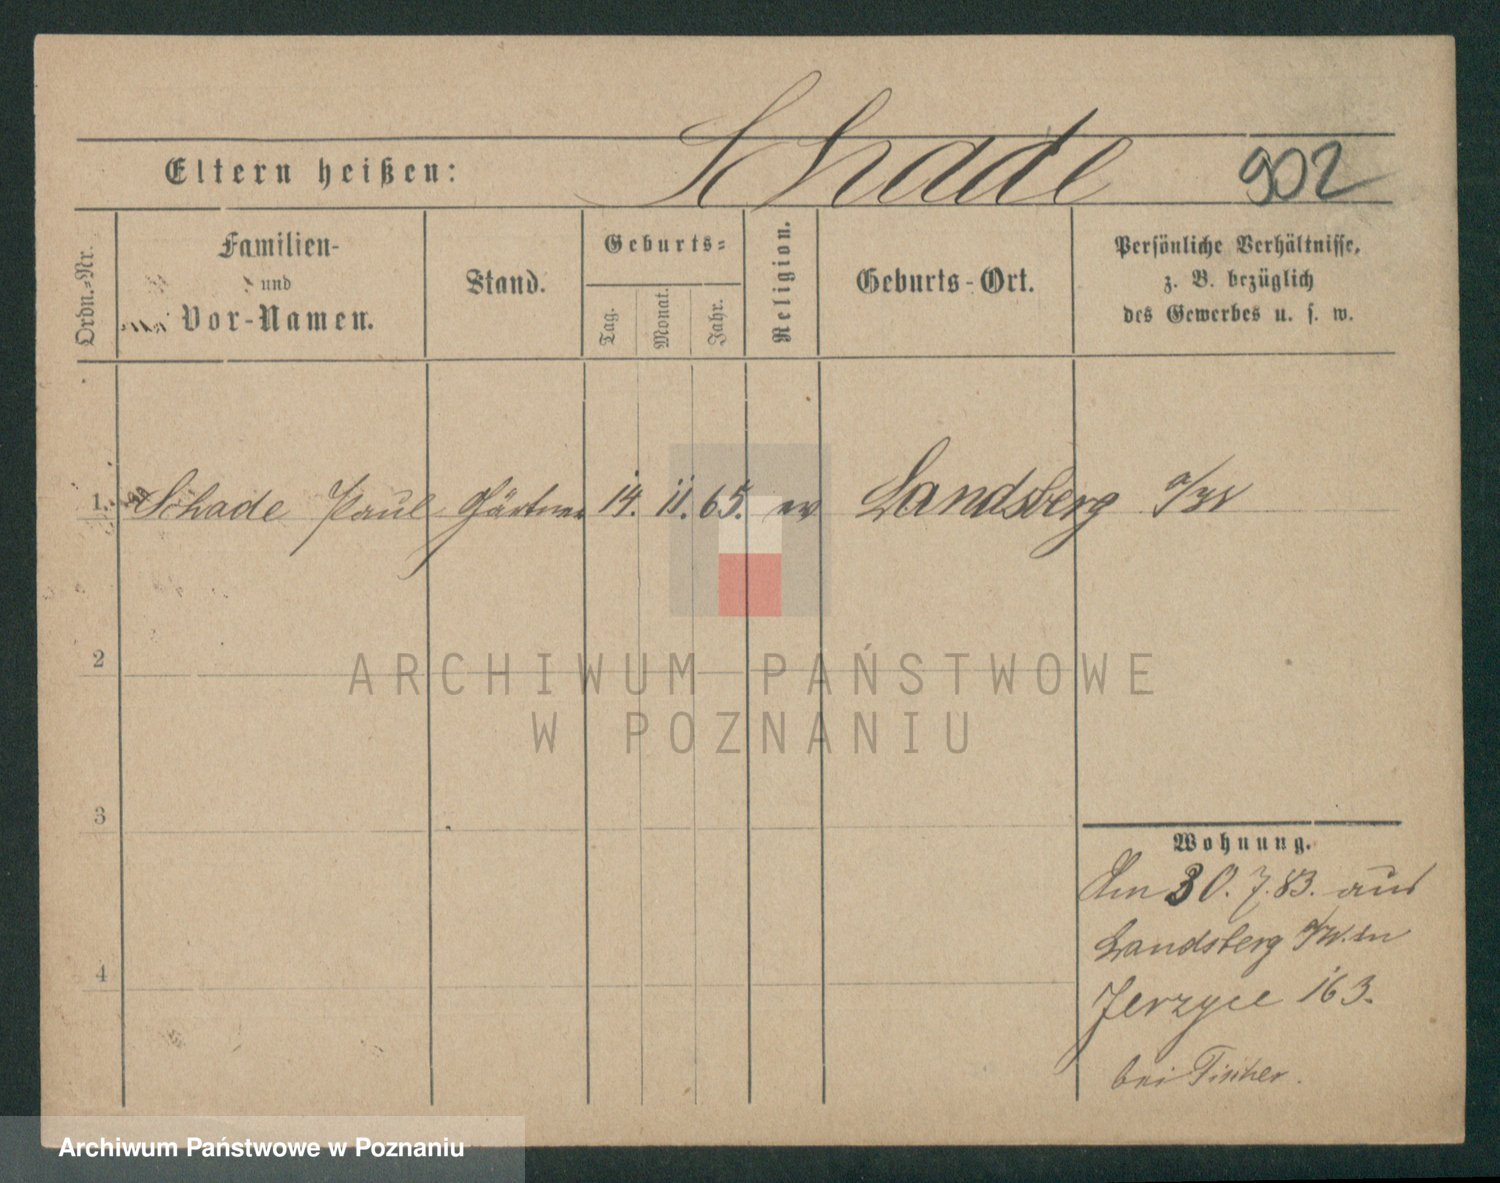 Schade 902
Eltern heißen:
Ordn.-Nr.
Familien-
und
Vor-Namen.
Stand.
Geburts-
Tag.
Monat.
Jahr.
Religion.
Geburts-Ort.
Persönliche Verhältnisse,
z. B. bezüglich
des Gewerbes u. s. w.
1. Schade Paul Gärtner 14. 11. 65. ev Landsberg
2
3
4
Wohnung.
Am 30. 7. 83. aus
Landsberg a/W. in
Jerzyce 163.
bei Fischer.
ARCHIWUM PAŃSTWOWE
W POZNANIU
Archiwum Państwowe w Poznaniu